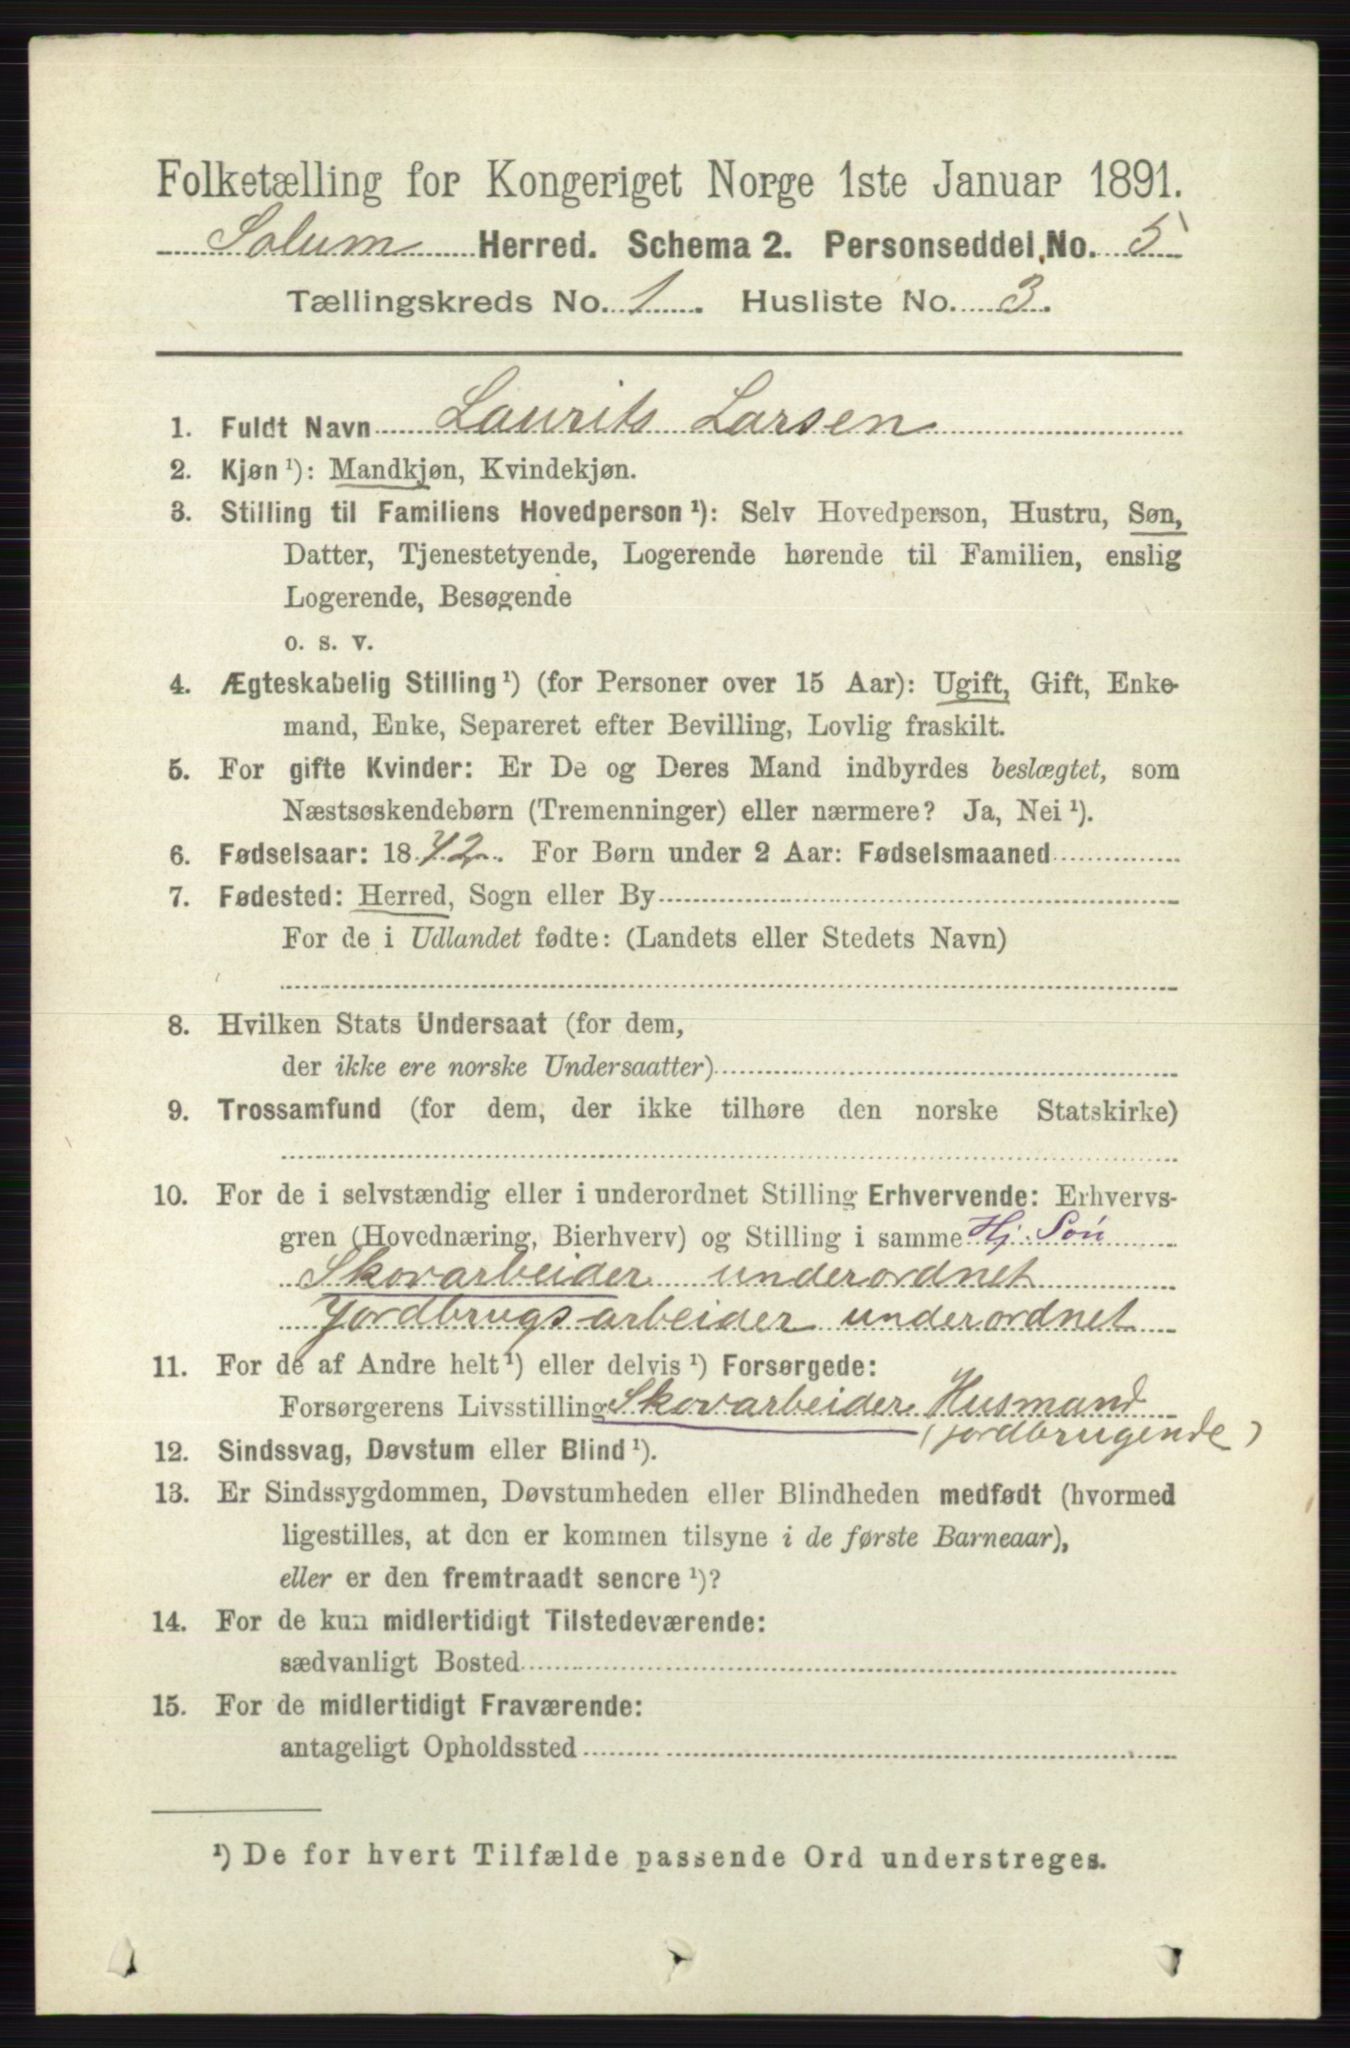 Folketælling for Kongeriget Norge 1ste Januar 1891.
Solum Herred. Schema 2. Personseddel No. 5
Tællingskreds No. 1. Husliste No. 3.
1. Fuldt Navn Laurits Larsen
2. Kjøn ¹): Mandkjøn, Kvindekjøn.
3. Stilling til Familiens Hovedperson ¹): Selv Hovedperson, Hustru, Søn,
Datter, Tjenestetyende, Logerende hørende til Familien, enslig
Logerende, Besøgende
o. s. v.
4. Ægteskabelig Stilling ¹) (for Personer over 15 Aar): Ugift, Gift, Enke-
mand, Enke, Separeret efter Bevilling, Lovlig fraskilt.
5. For gifte Kvinder: Er De og Deres Mand indbyrdes beslægtet, som
Næstsøskendebørn (Tremenninger) eller nærmere? Ja, Nei ¹).
6. Fødselsaar: 18 72. For Børn under 2 Aar: Fødselsmaaned
7. Fødested: Herred, Sogn eller By
For de i Udlandet fødte: (Landets eller Stedets Navn)
8. Hvilken Stats Undersaat (for dem,
der ikke ere norske Undersaatter)
9. Trossamfund (for dem, der ikke tilhøre den norske Statskirke)
10. For de i selvstændig eller i underordnet Stilling Erhvervende: Erhvervs-
gren (Hovednæring, Bierhverv) og Stilling i samme Hj. Søn
Skovarbeider underordnet
Jordbrugsarbeider underordnet
11. For de af Andre helt ¹) eller delvis ¹) Forsørgede:
Forsørgerens Livsstilling Skovarbeider Husmand
(jordbrugende)
12. Sindssvag, Døvstum eller Blind ¹).
13. Er Sindssygdommen, Døvstumheden eller Blindheden medfødt (hvormed
ligestilles, at den er kommen tilsyne i de første Barneaar),
eller er den fremtraadt senere ¹)?
14. For de kun midlertidigt Tilstedeværende:
sædvanligt Bosted
15. For de midlertidigt Fraværende:
antageligt Opholdssted
¹) De for hvert Tilfælde passende Ord understreges.